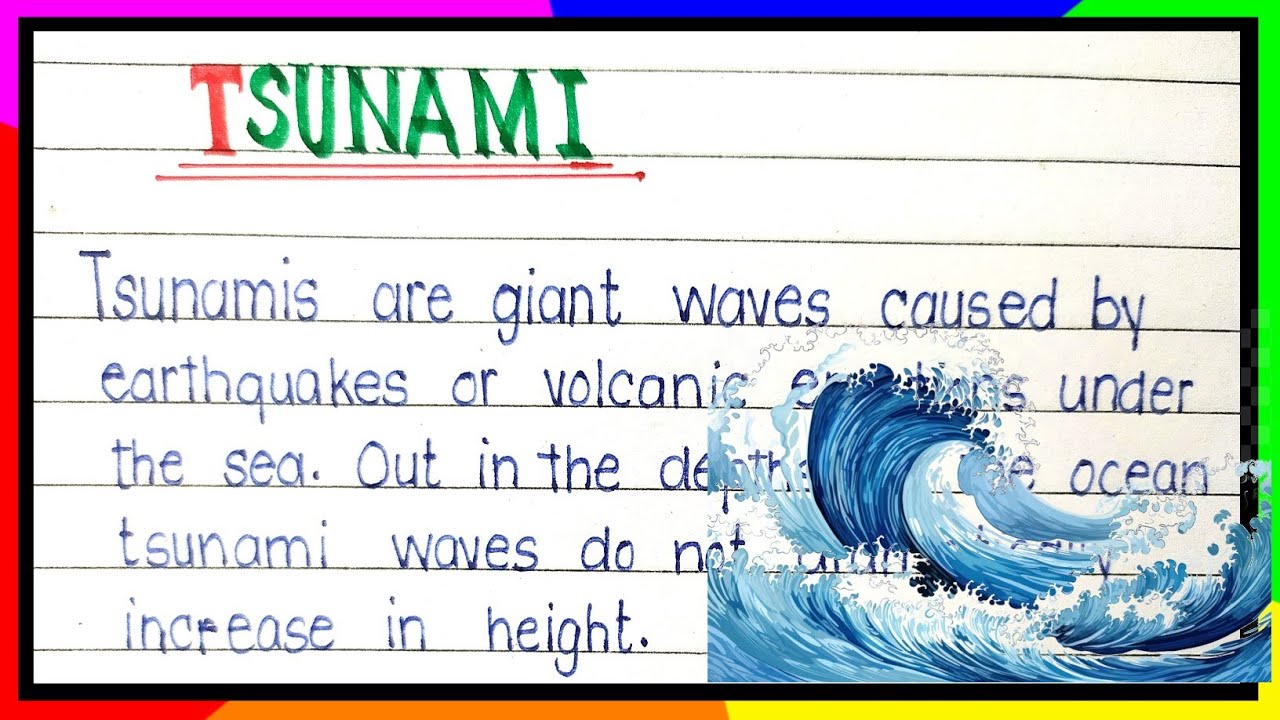 TSUNAMI
Tsunamis are giant waves caused by
earthquakes or volcanic eruptions under
the sea. Out in the depths ocean
tsunami waves do not
increase in height.